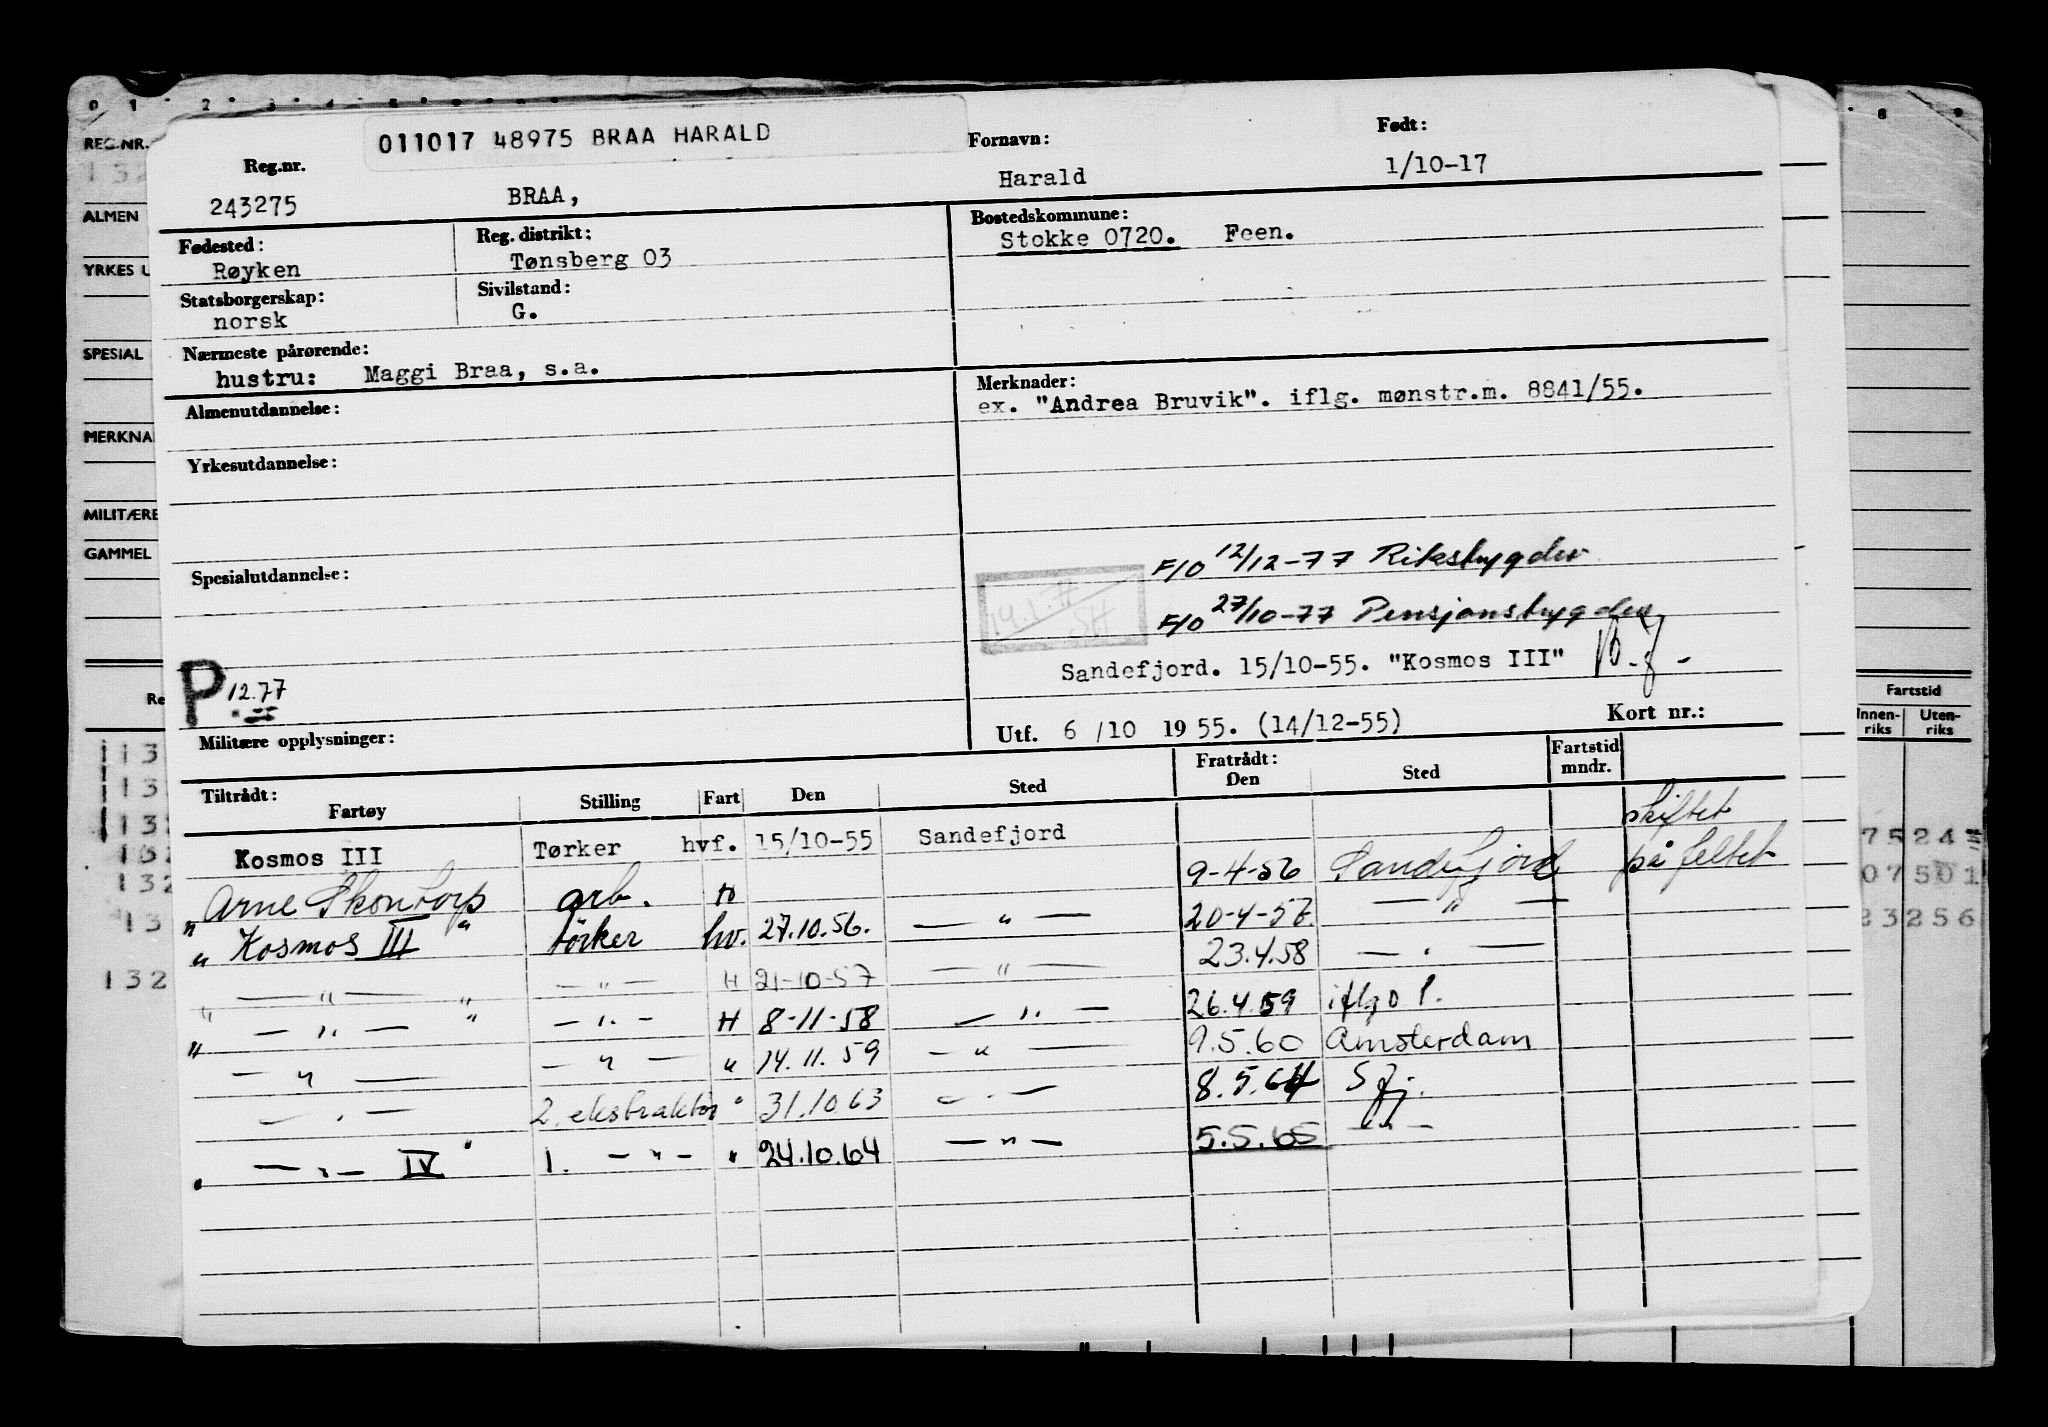 011017 48975 BRAA HARALD
Reg.nr. Fornavn: Født:
243275 BRAA, Harald 1/10-17
Fødested: Reg. distrikt: Bostedskommune:
Røyken Tønsberg 03 Stokke 0720. Feen.
Statsborgerskap: Sivilstand:
norsk G.
Nærmeste pårørende:
hustru: Maggi Braa, s.a.
Merknader:
ex. "Andrea Bruvik". iflg. mønstr.m. 8841/55.
Almenutdannelse:
Yrkesutdannelse:
Spesialutdannelse:
F/O 12/12-77 Rikstrygdev
F/O 27/10-77 Pensjonstrygden
Sandefjord. 15/10-55. "Kosmos III"
P 12.77
Militære opplysninger:
Utf. 6/10 1955. (14/12-55) Kort nr.:
Tiltrådt: Fratrådt: Fartstid
Fartøy Stilling Fart Den Sted Den Sted mndr.
Kosmos III Tørker hvf. 15/10-55 Sandefjord skiftet
" Arne Skontorp " arb. H 9-4-56 Sandefjord på feltet
" Kosmos III " tørker hv. 27.10.56. — " — 20-4-57. — " —
" — " — " — " — H 21-10-57 — " — 23.4.58 — " —
" — " — " — " — H 8-11-58 — " — 26.4.59 iflg o l.
— " — — " — " 14.11.59 — " — 9.5.60 Amsterdam
— " — 2. ekstraktør " 31.10.63 — " — 8.5.64 Sfj.
" — " — IV " 1. — " — " 24.10.64 — " — 5.5.65 — " —
REG.NR.
ALMEN
YRKES U
SPESIAL
MERKNA
MILITÆRE
GAMMEL
Fartstid
Innen-riks Uten-riks